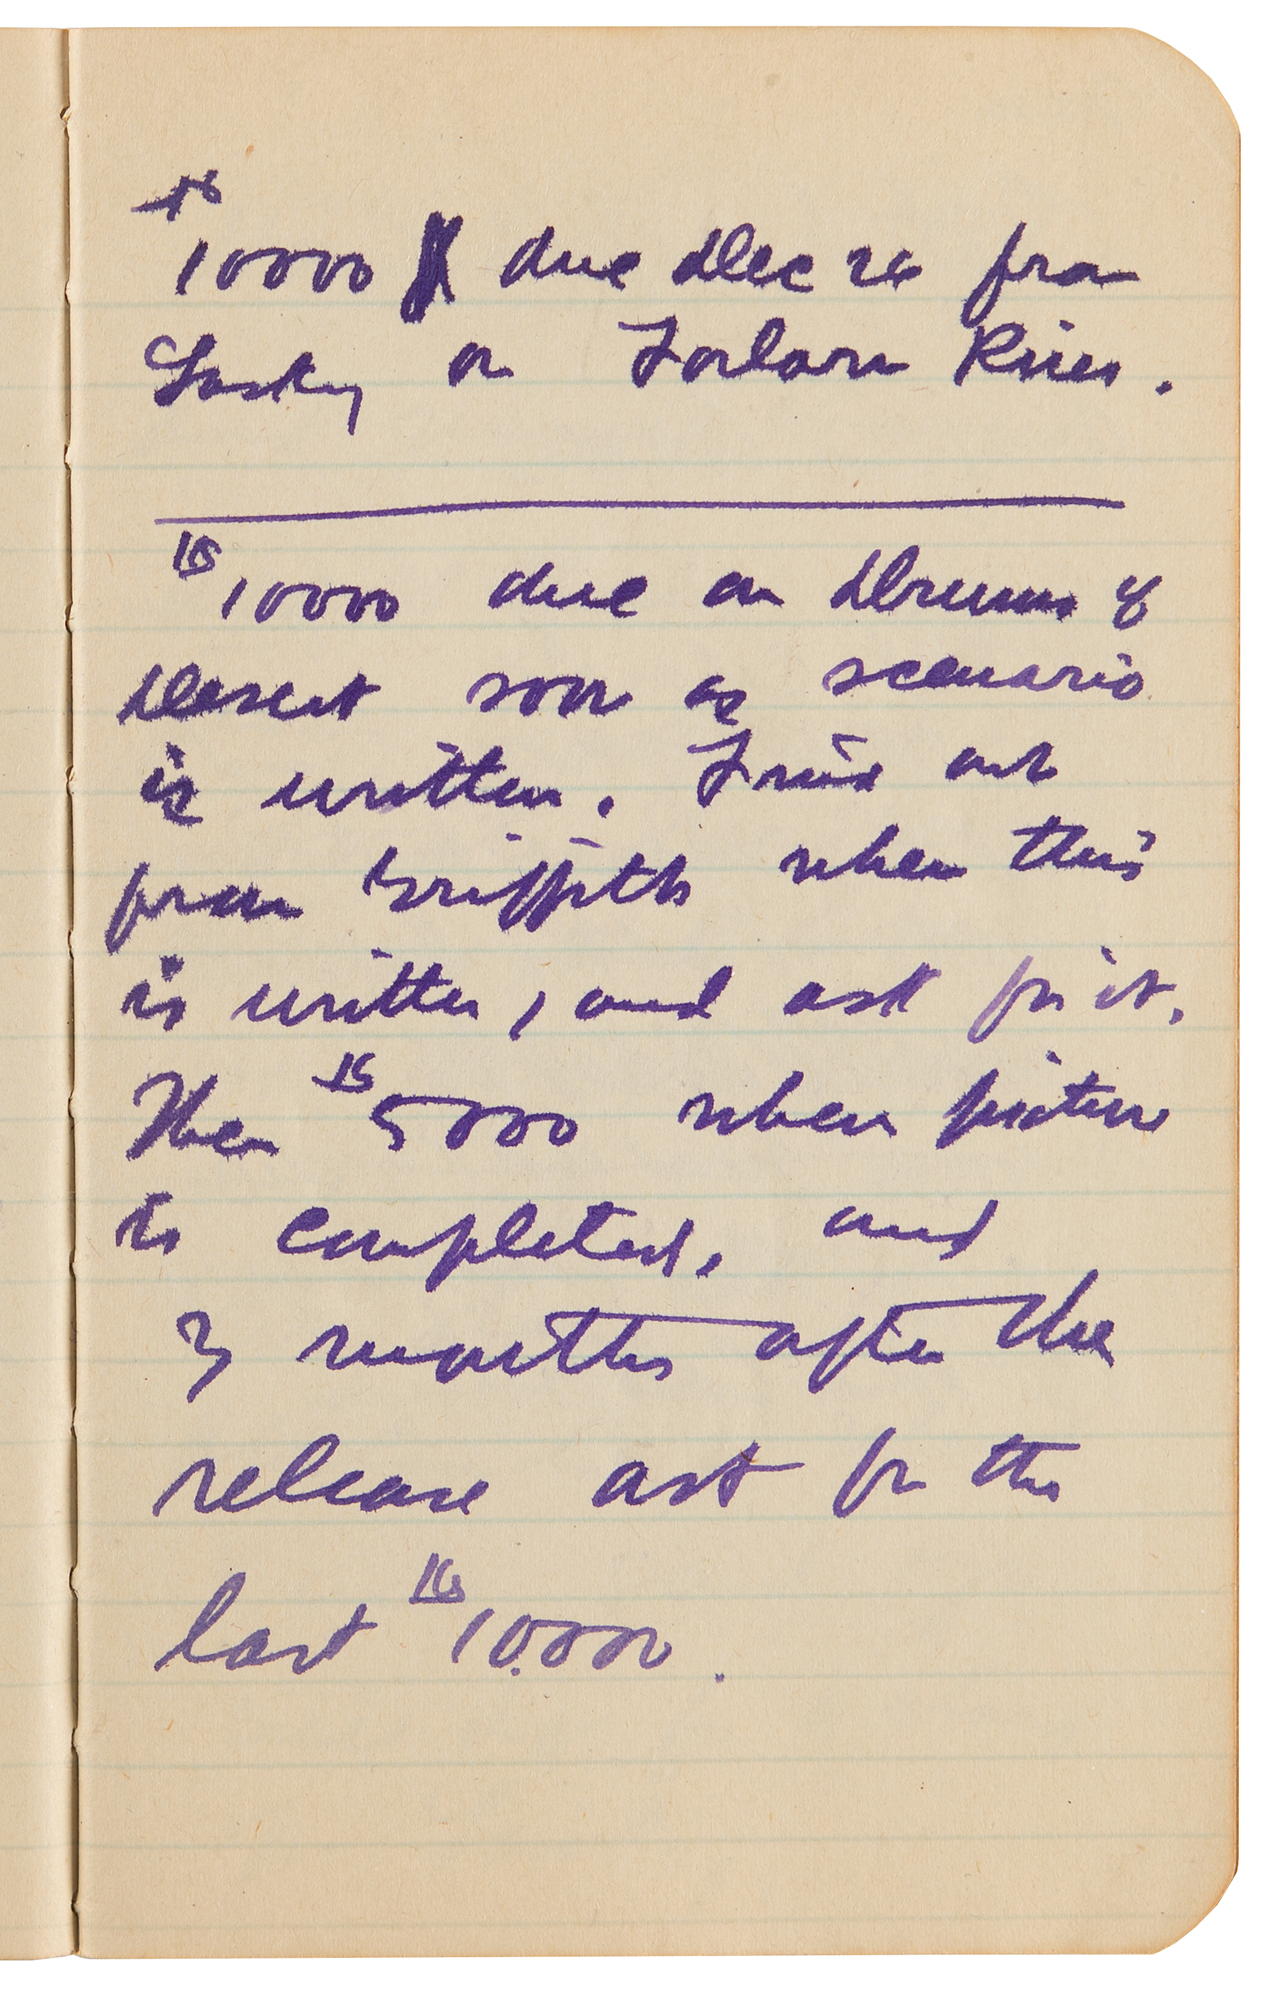 $10000 due Dec 20 from
Lasky on Forlorn River.
$10000 due on Drums of
Desert soon as scenario
is written. Find out
from Griffith when this
is written, and ask for it.
Then $5000 when picture
is completed, and
3 months after the
release ask for the
last $10.000.